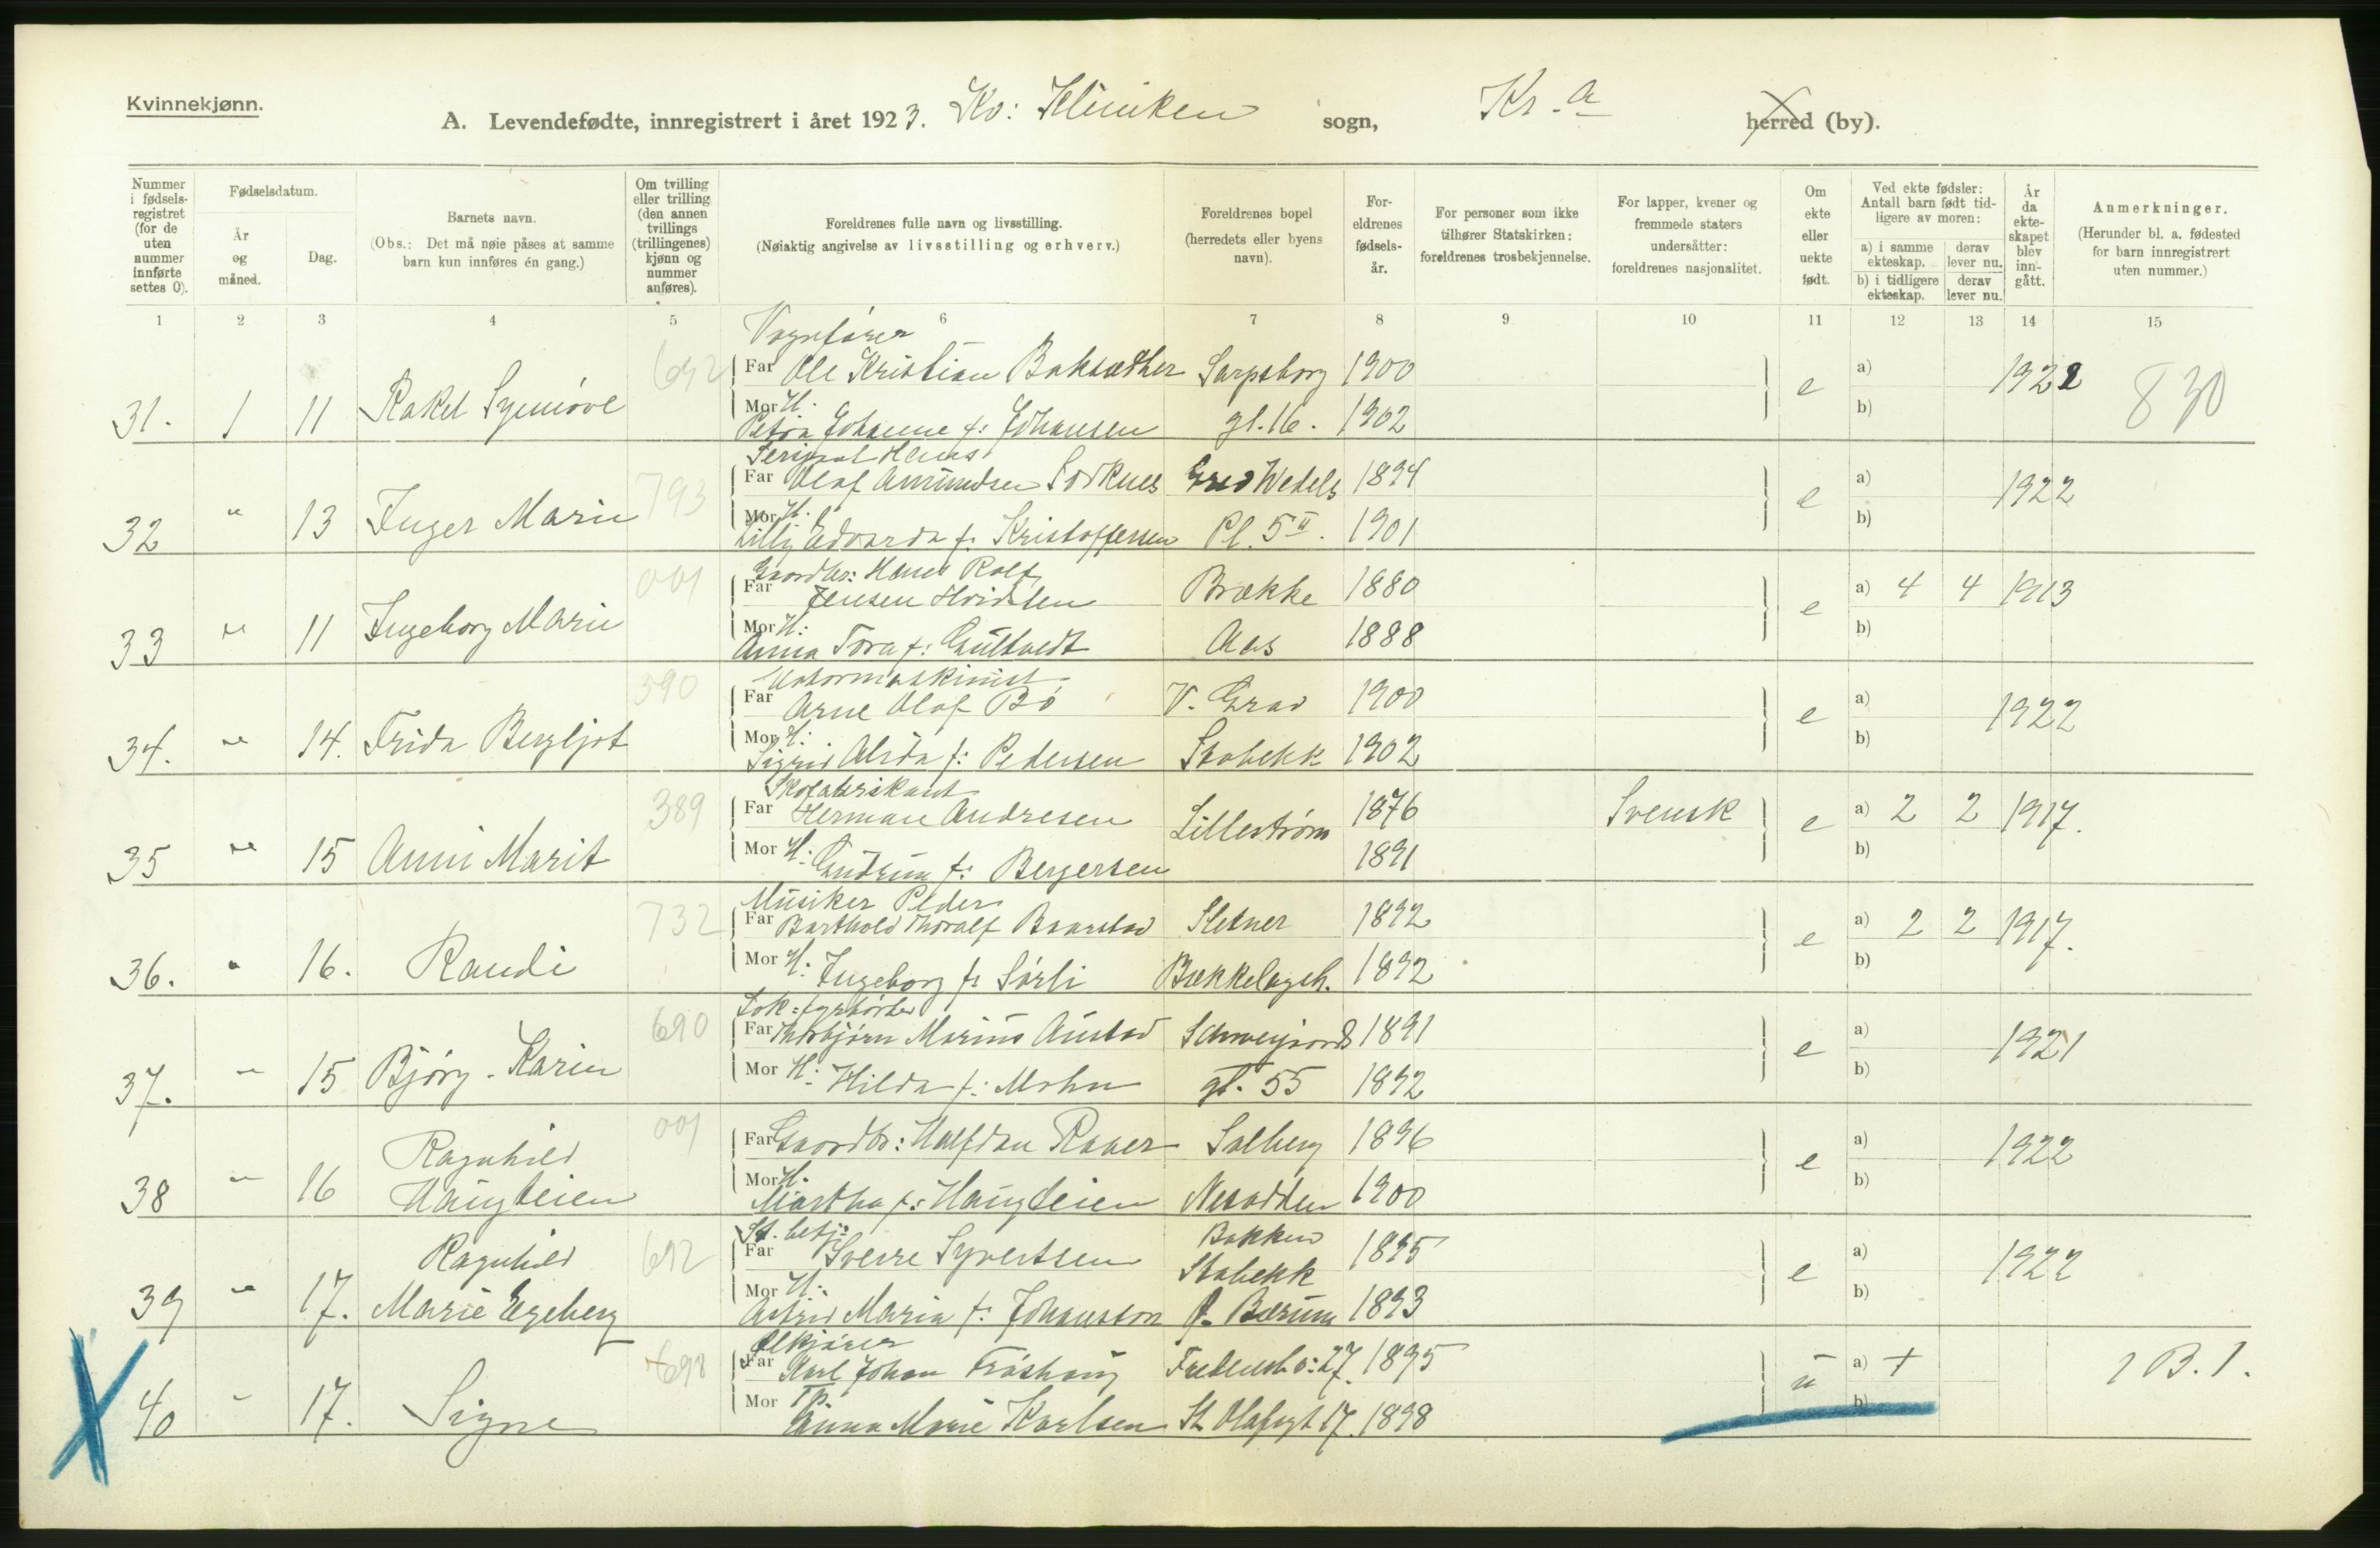 Kvinnekjønn.
A. Levendefødte, innregistrert i året 1923. Kv: Kliniken sogn, Kr.a herred (by).
Nummer i fødselsregistret (for de uten nummer innførte settes 0).
Fødselsdatum.
År og måned.
Dag.
Barnets navn.
(Obs.: Det må nøie påses at samme barn kun innføres én gang.)
Om tvilling eller trilling (den annen tvillings (trillingenes) kjønn og nummer anføres).
Foreldrenes fulle navn og livsstilling.
(Nøiaktig angivelse av livsstilling og erhverv.)
Foreldrenes bopel (herredets eller byens navn).
Foreldrenes fødselsår.
For personer som ikke tilhører Statskirken: foreldrenes trosbekjennelse.
For lapper, kvener og fremmede staters undersåtter: foreldrenes nasjonalitet.
Om ekte eller uekte født.
Ved ekte fødsler: Antall barn født tidligere av moren:
a) i samme ekteskap. derav lever nu.
b) i tidligere ekteskap. derav lever nu.
År da ekteskapet blev inngått.
Anmerkninger.
(Herunder bl. a. fødested for barn innregistrert uten nummer.)
1 2 3 4 5 6 7 8 9 10 11 12 13 14 15
Vognfører
692 Far Ole Kristian Baksæther Sarpsborg 1900 a) 1922 830
31. 1 11 Rakel Synnøve Mor H: e b)
Petra Johanne f: Johansen gt. 16. 1902
793 Far Olaf Amundsen Sorknes Grev Wedels 1894 a) 1922
32 " 13 Inger Marie Mor H: e b)
Lilly Edvarda f: Kristoffersen Pl. 5 II. 1901
001 Gaardbr: Hans Rolf
Far Jensen Hvidsten Brække 1880 a) 4 4 1913
33 " 11 Ingeborg Marie Mor H: e b)
Anna Tora f: Gultvedt Aas 1888
590 Motormaskinist
Far Arne Olaf Bø V. Grav 1900 a) 1922
34. " 14. Frida Bergljot Mor H: e b)
Sigrid Alida f: Pedersen Stabekk 1902
389 Skofabrikant
Far Herman Andresen Lillestrøm 1876 Svensk a) 2 2 1917.
35 " 15 Anni Marit Mor H: Gudrun f: Bergersen 1891 e b)
Musiker Peder
732 Far Barthold Thoralf Baarstad Sletner 1892 a) 2 2 1917.
36. " 16. Randi Mor H: Ingeborg f: Sørli Bækkelagsh. 1892 e b)
Lok: fyrbøter
690 Far Thorbjørn Marius Austad Schweigaards 1891 a) 1921
37. " 15 Bjørg-Karin Mor H: Hilda f: Mohn gt. 55 1892 e b)
001 Far Gaardbr: Halfdan Raaer Solberg 1896 a) 1922
38 " 16 Ragnhild Haugteien Mor H: e b)
Martha f: Haugteien Nesodden 1900
St. betj: Bakken
692 Far Sverre Syvertsen Stabekk 1895 a) 1922
39 " 17. Ragnhild Marie Egeberg Mor H: e b)
Astrid Maria f: Johansson Ø. Bærum 1893
Ølkjører
698 Far Karl Johan Frøshaug Fredensb.v: 27. 1895 a) + 1 B. 1.
40 " 17. Signe Mor Tp. u b)
Anna Marie Karlsen St. Olafsgt 17. 1898